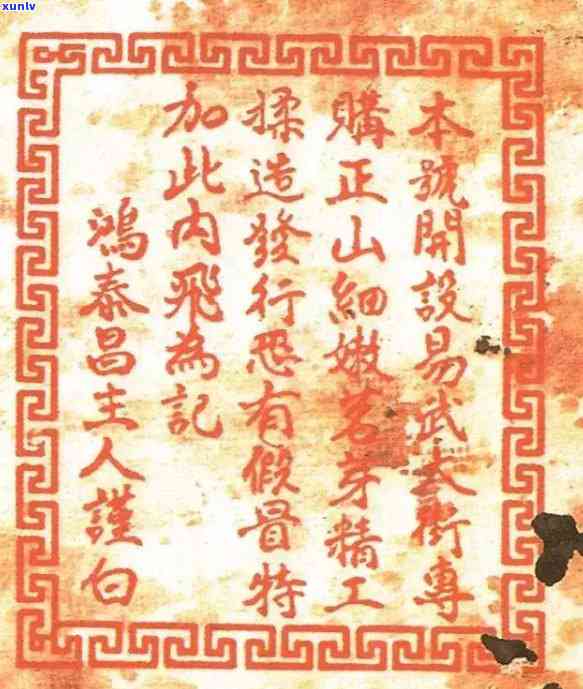 xunlv
本號開設易武大街專
購正山細嫩茗芽精工
揉造發行恐有假冒特
加此內飛為記
鴻泰昌主人謹白